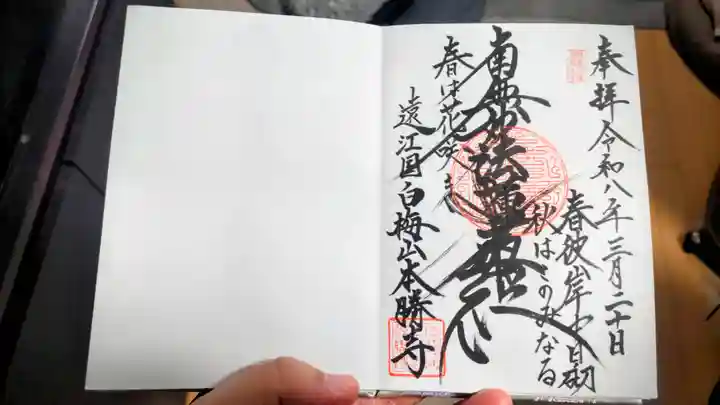 奉拝 令和八年三月二十日
春彼岸中日砌
秋はこのみなる
南無妙法蓮華経
春は花咲き
遠江国白梅山本勝寺